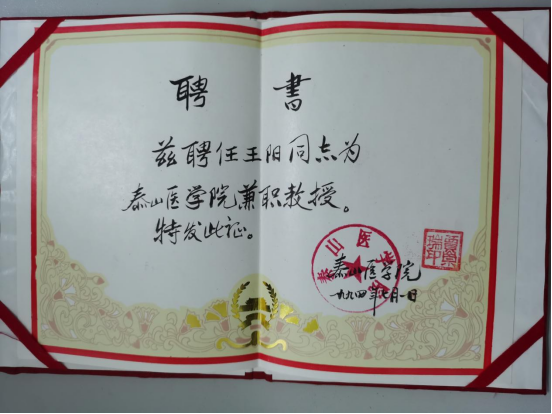 聘書
兹聘任王阳同志为
泰山医学院兼职教授。
特发此证。
泰山医学院
一九九四年七月一日